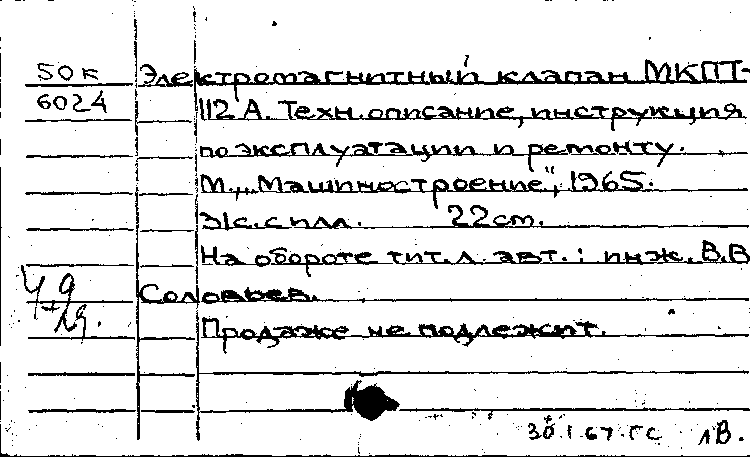 50к Электромагнитный клапан МКПТ-
6024 112 А. Техн. описание, инструкция
по эксплуатации и ремонту.
М., "Машиностроение", 1965.
31с. с илл. 22 cm.
На обороте тит. л. авт.: инж. В.В.
Соловьев.
Продаже не подлежит.